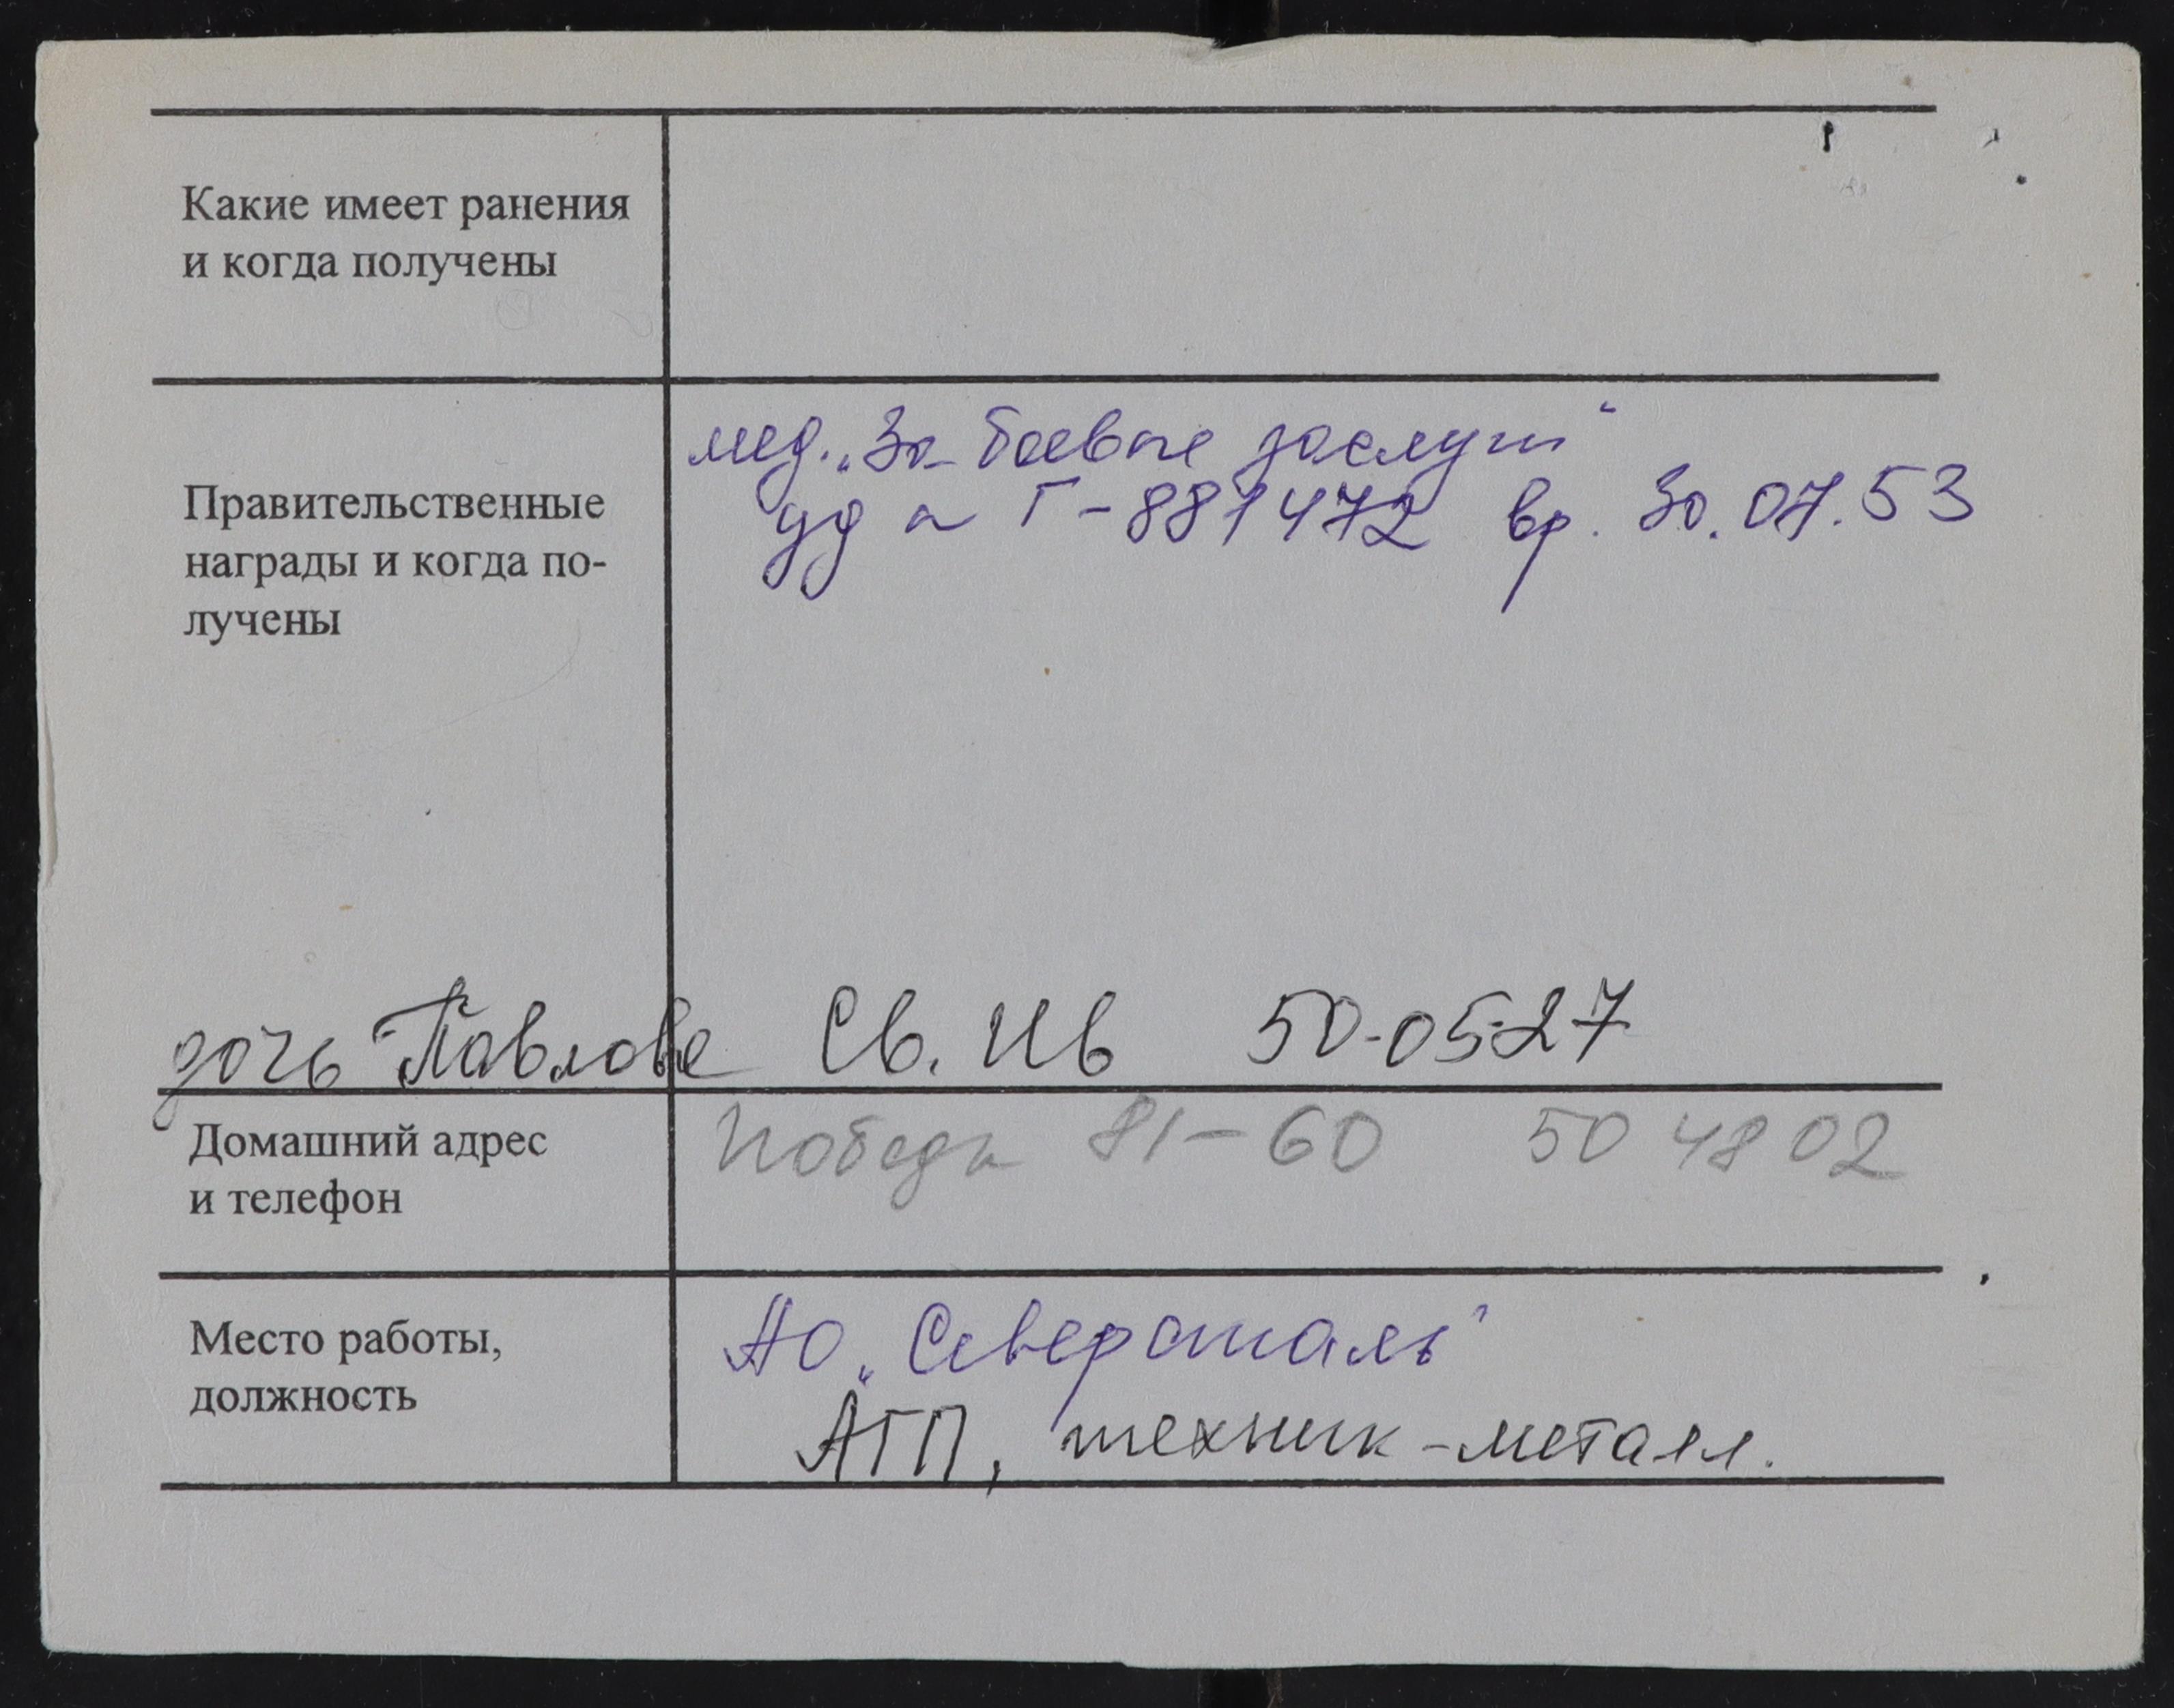 Какие имеет ранения
и когда получены
мед. „За боевые заслуги“
Правительственные
награды и когда по-
лучены
уд а Г-881472 вр. 30.07.53
дочь Павлова Св. Ив 50-05-27
Домашний адрес
и телефон
Победы 81-60 50 48 02
Место работы,
должность
АО „Северсталь“
АТП, техник-металл.